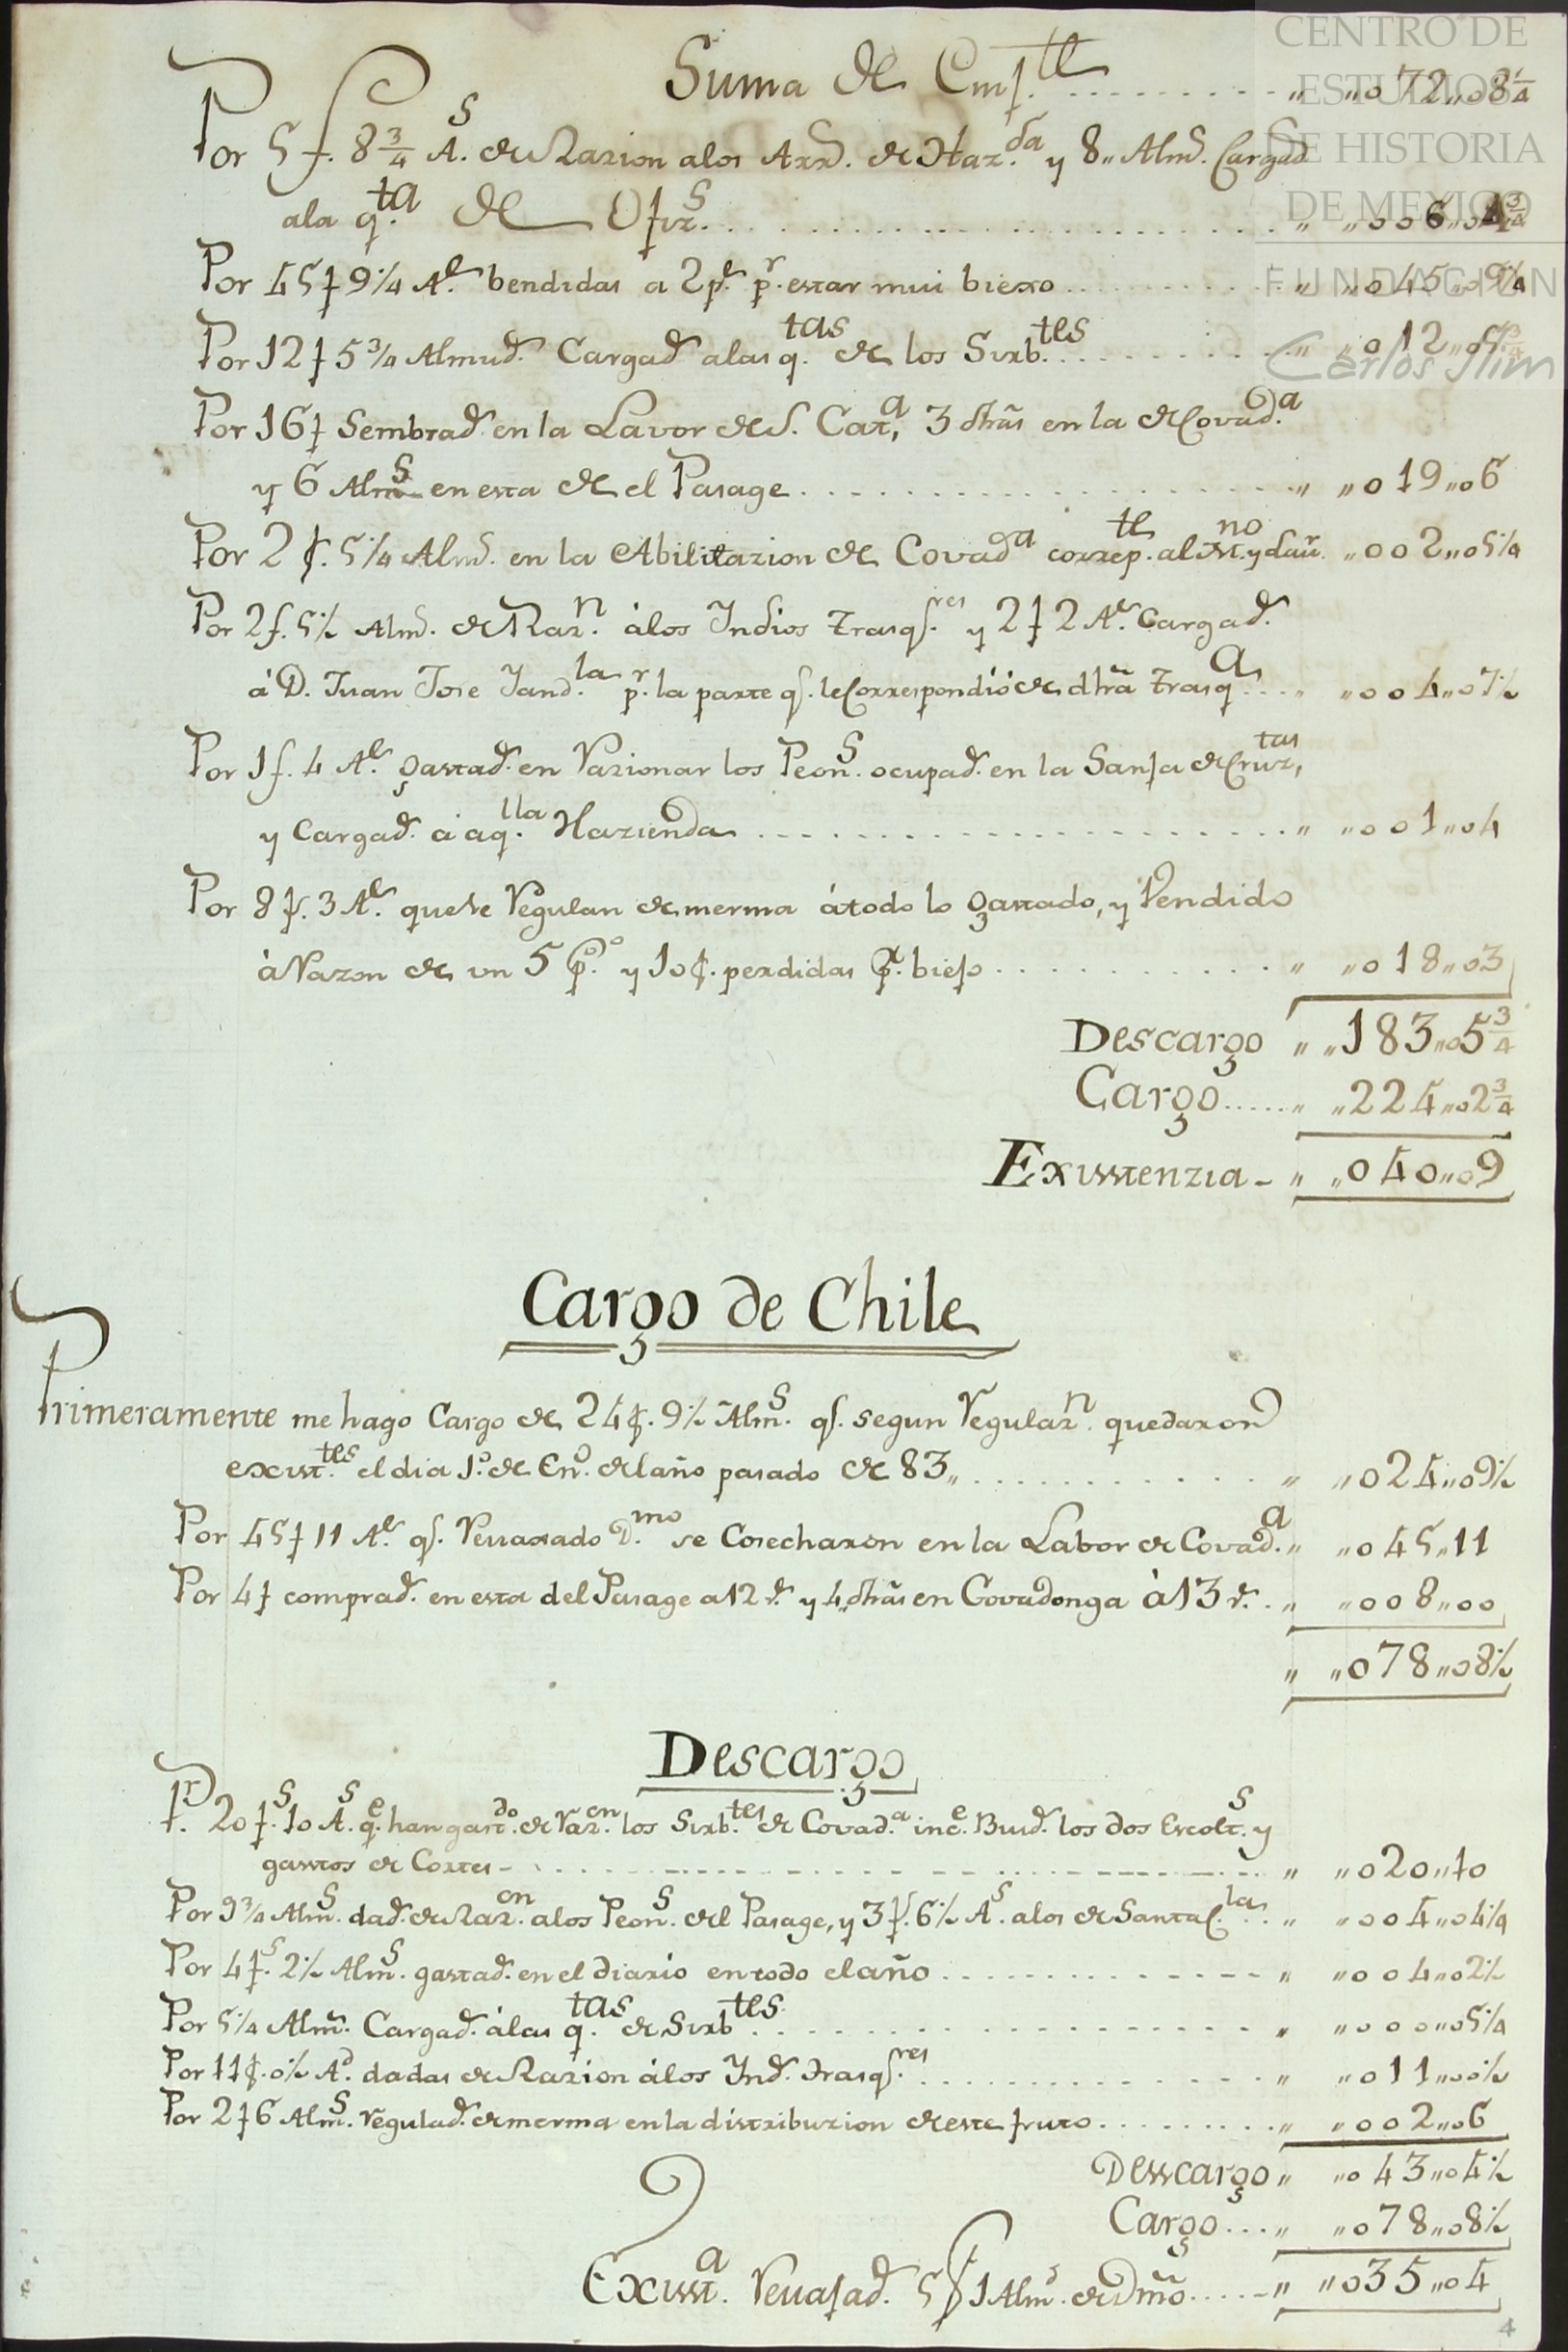 Suma de Enf.te .......... „ „o72„o8¼
Por 5 f. 8¾ A.s de Razion alos Arr.s de Haz.da y 8„ Alm.s Cargad.s
ala q.ta de Ofiz.s .......... „ „oo6„o4¾
Por 45 f 9¼ A.s bendidas a 2 p.s p.r estar mui biexo .......... „ „o45„o9¼
Por 12 f 5¾ Almud.s Cargad.s alas q.tas de los Sirb.tes .......... „ „o12„o5¾
Por 16 f Sembrad.s en la Lavor de S. Cat.a, 3 dhãs en la de Covad.a
y 6 Alm.s en esta de el Pasage .......... „ „o19„o6
Por 2 f. 5¼ Alm.s en la Abilitazion de Covad.a corresp.te al M.no y dau.r „oo2„o5¼
Por 2 f. 5½ Alm.s de Raz.n álos Indios trasq.res y 2 f 2 A.s Cargad.s
á D. Juan Jose Jand.la p.r la parte q.e le Correspondió de dhã trasq.a ... „ „oo4„o7½
Por 1 f. 4 A.s gastad.s en Razionar los Peon.s ocupad.s en la Santa de Cruz,tas
y Cargad.s á aq.lla Hazienda .......... „ „oo1„o4
Por 8 f. 3 A.s que se Regulan de merma átodo lo gastado, y Vendido
à Razon de un 5 p.o y 10 f. perdidas p.r biejo .......... „ „o18„o3
Descargo „ „183„o5¾
Cargo ..... „ „224„o2¾
Existenzia - „ „o40„o9
Cargo de Chile
Primeramente me hago Cargo de 24 f. 9½ Alm.s q.e segun Regulaz.n quedaron
exist.tes el dia 1.o de En.o del año pasado de 83„ .......... „ „o24„o9½
Por 45 f 11 A.s q.e Revaxado D.mo se Cosecharon en la Labor de Covad.a „ „o45„11
Por 4 f comprad.s en esta del Pasage a 12 r.s y 4„ dhãs en Covadonga à 13 r.s . „ „oo8„oo
„ „o78„o8½
Descargo
P.r 20 f.s 10 A.s q.e han gast.do de Raz.on los Sirb.tes de Covad.a inc.e Buid.s los dos Escolt.s y
gastos de Cortes - .......... „ „o20„10
Por 9¾ Alm.s dad.s de Raz.on alos Peon.s del Pasage, y 3 f. 6½ A.s alos de Santa C.las . „ „oo4„o4¼
Por 4 f.s 2½ Alm.s gastad.s en el diario en todo el año .......... „ „oo4„o2½
Por 5¼ Alm.s Cargad.s álas q.tas de Sirb.tes .......... „ „ooo„o5¼
Por 11 f. o½ A.s dadas de Razion álos Ind.s trasq.res .......... „ „o11„oo½
Por 2 f 6 Alm.s regulad.s de merma en la distribuzion de este fruto .......... „ „oo2„o6
Desscargo „ „o43„o4½
Cargo ... „ „o78„o8½
Exisst.a Revajad.s 5 f 1 Alm.s de Dmõ ..... „ „o35„o4
4
CENTRO DE
ESTUDIOS
DE HISTORIA
DE MEXICO
FUNDACIÓN
Carlos Slim